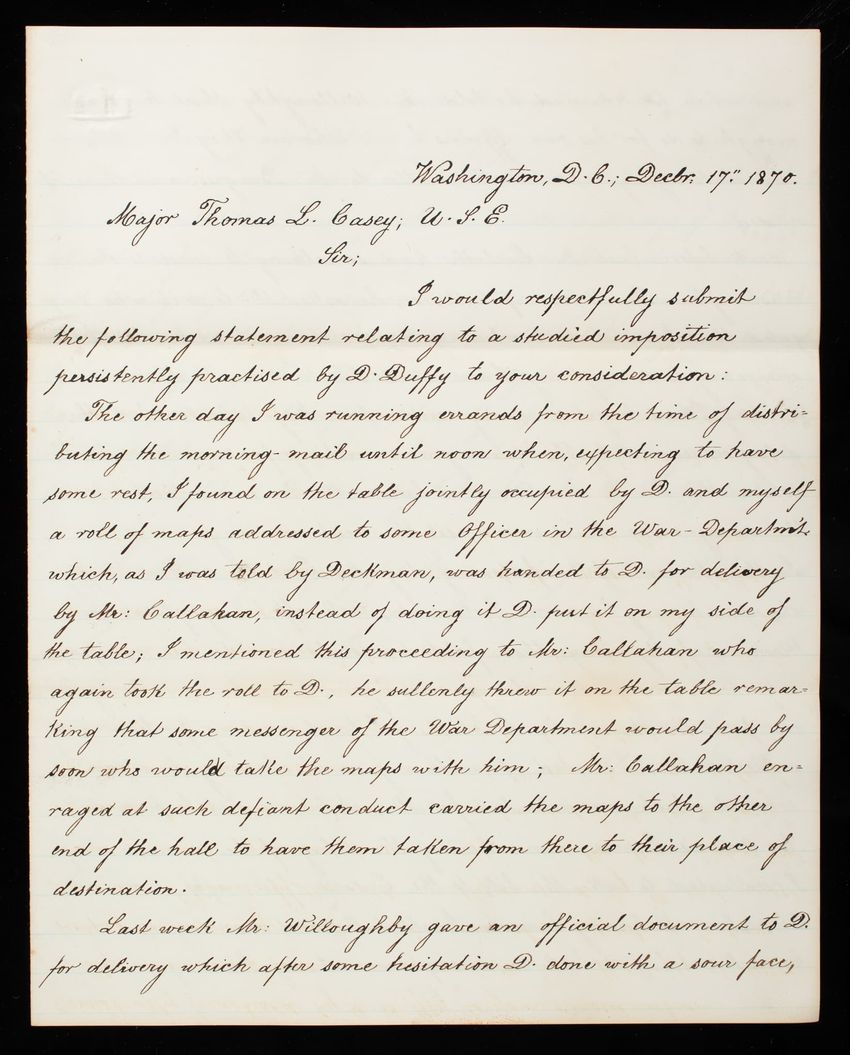 Washington, D.C.; Decbr: 17." 1870.
Major Thomas L. Casey; U.S.E.
Sir;
I would respectfully submit
the following statement relating to a studied imposition
persistently practised by D. Duffy to your consideration:
The other day I was running errands from the time of distri=
buting the morning-mail until noon when, expecting to have
some rest, I found on the table jointly occupied by D. and myself
a roll of maps addressed to some Officer in the War-Departm't.
which, as I was told by Deckman, was handed to D. for delivery
by Mr: Callahan, instead of doing it D. put it on my side of
the table; I mentioned this proceeding to Mr: Callahan who
again took the roll to D., he sullenly threw it on the table remar=
king that some messenger of the War Department would pass by
soon who would take the maps with him; Mr: Callahan en=
raged at such defiant conduct carried the maps to the other
end of the hall to have them taken from there to their place of
destination.
Last week Mr: Willoughby gave an official document to D.
for delivery which after some hesitation D. done with a sour face,